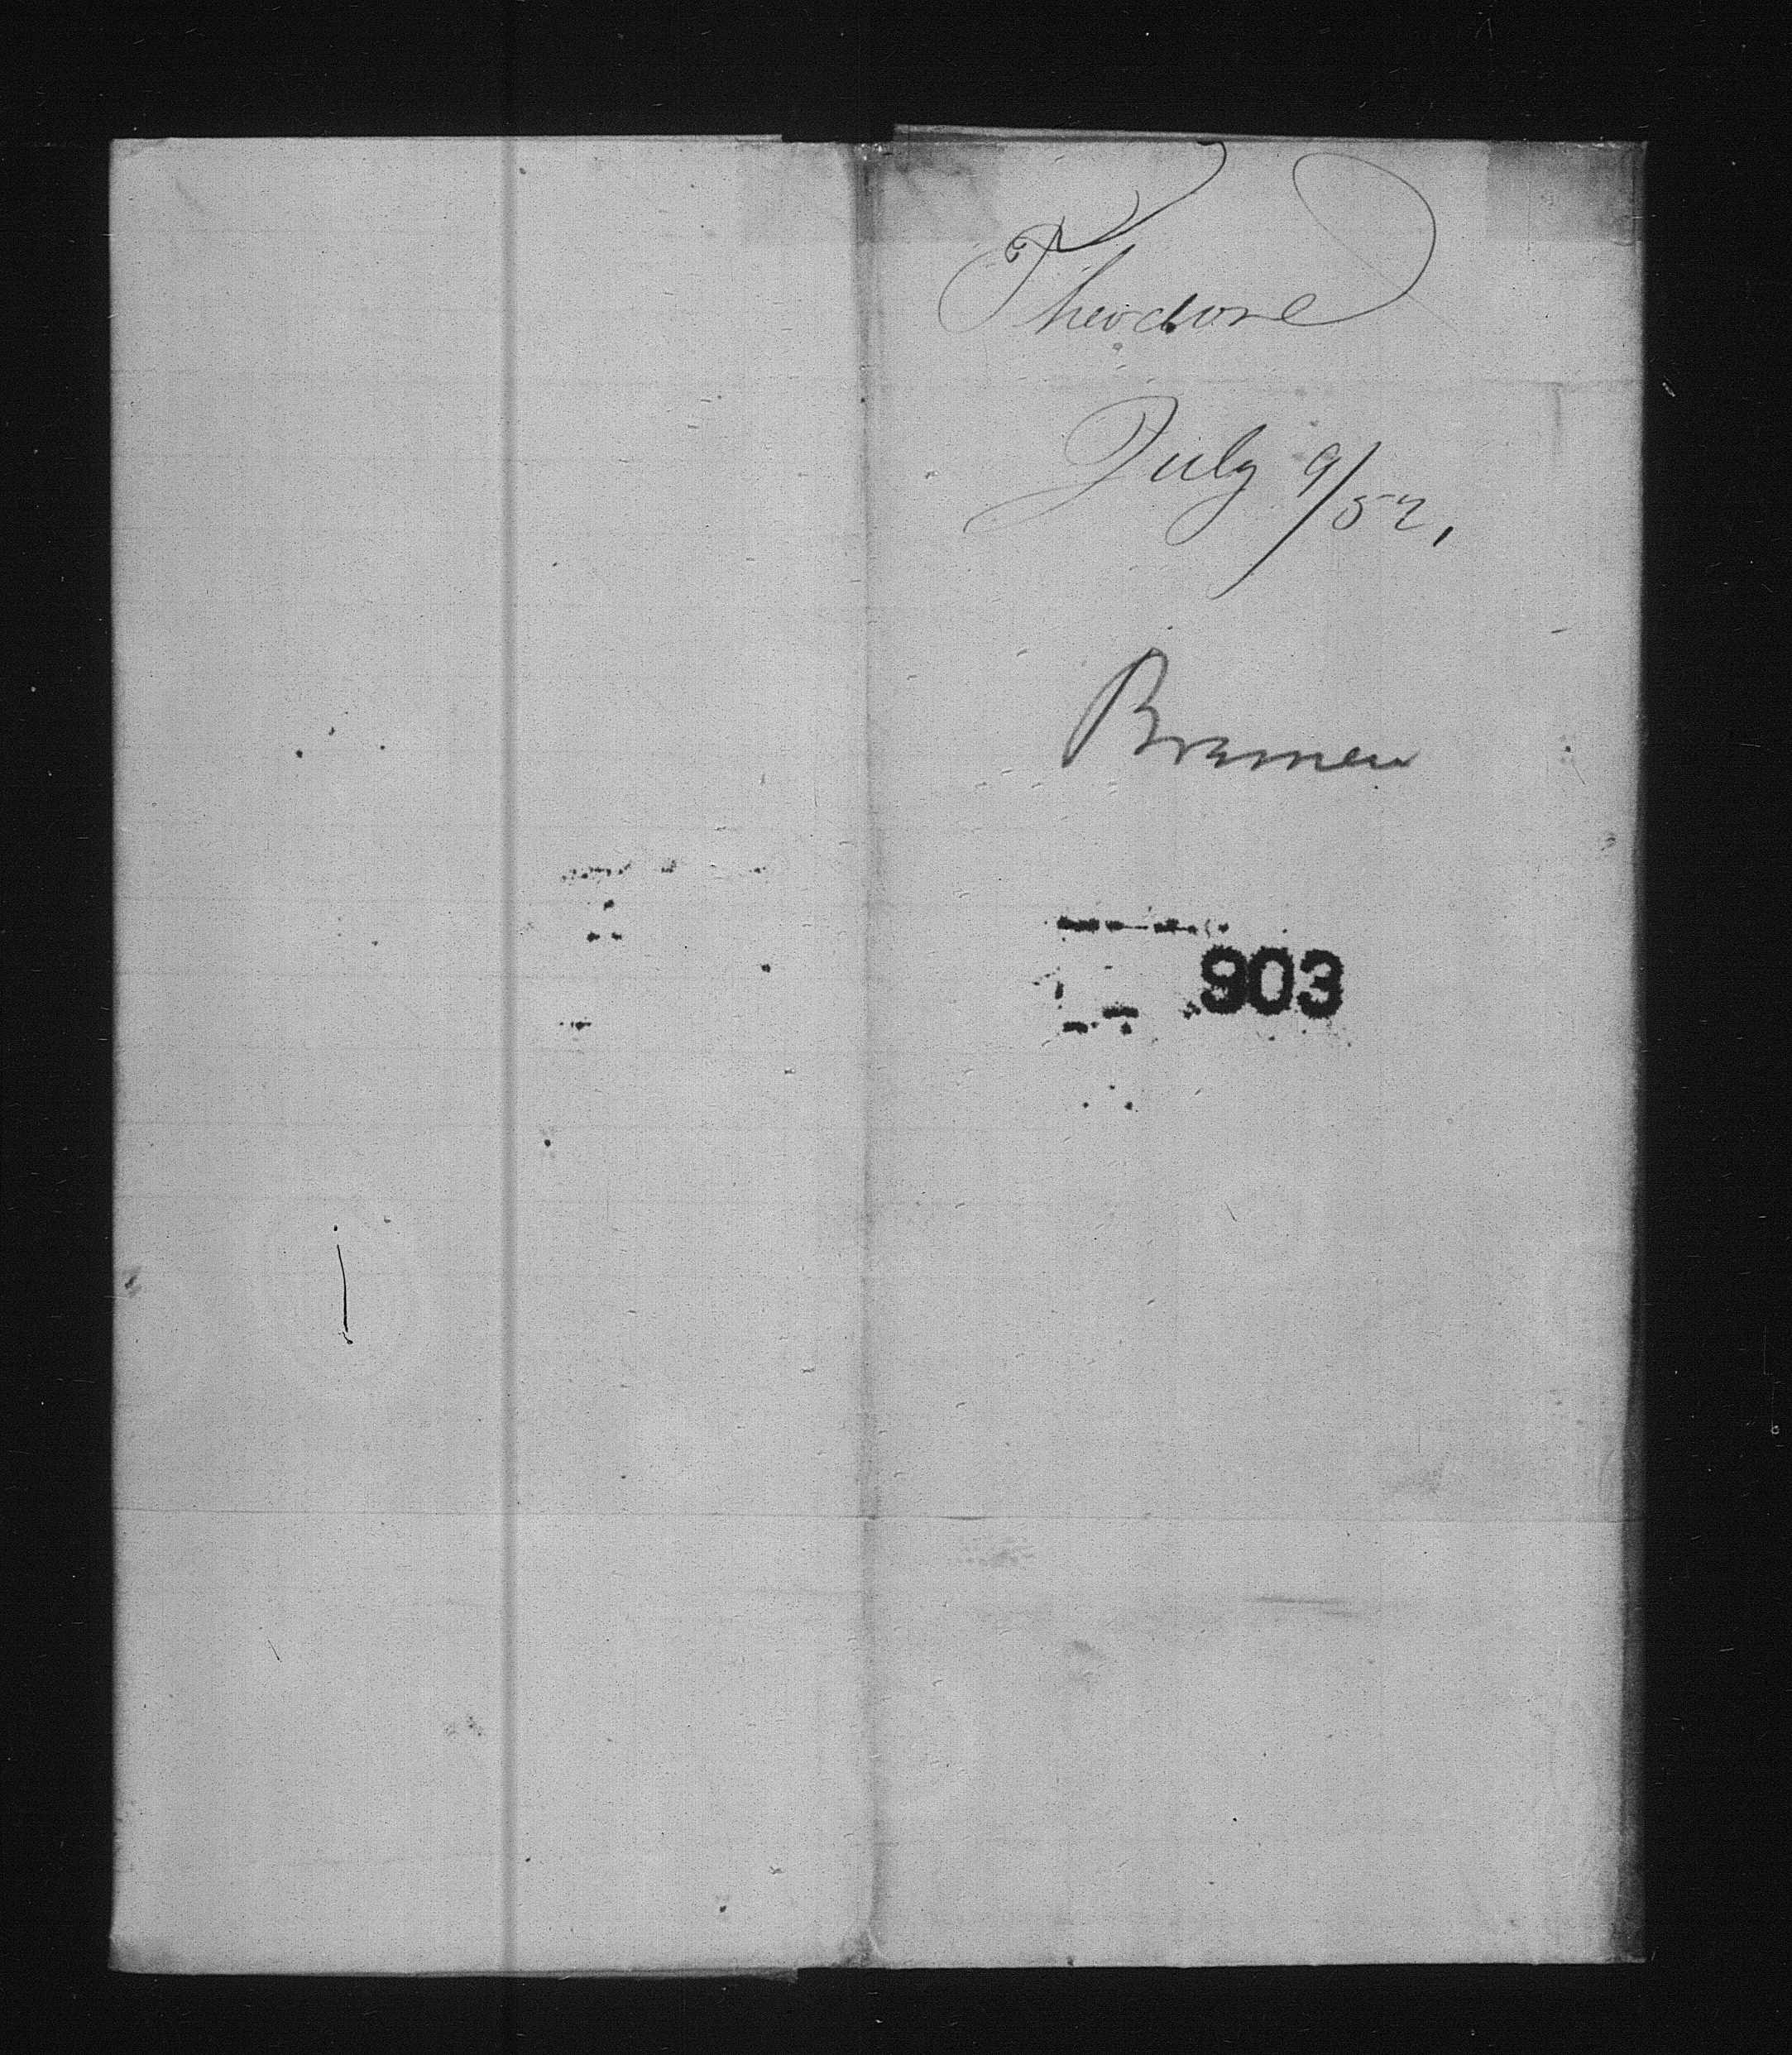 Theodore
July 9/52,
Bremen
903